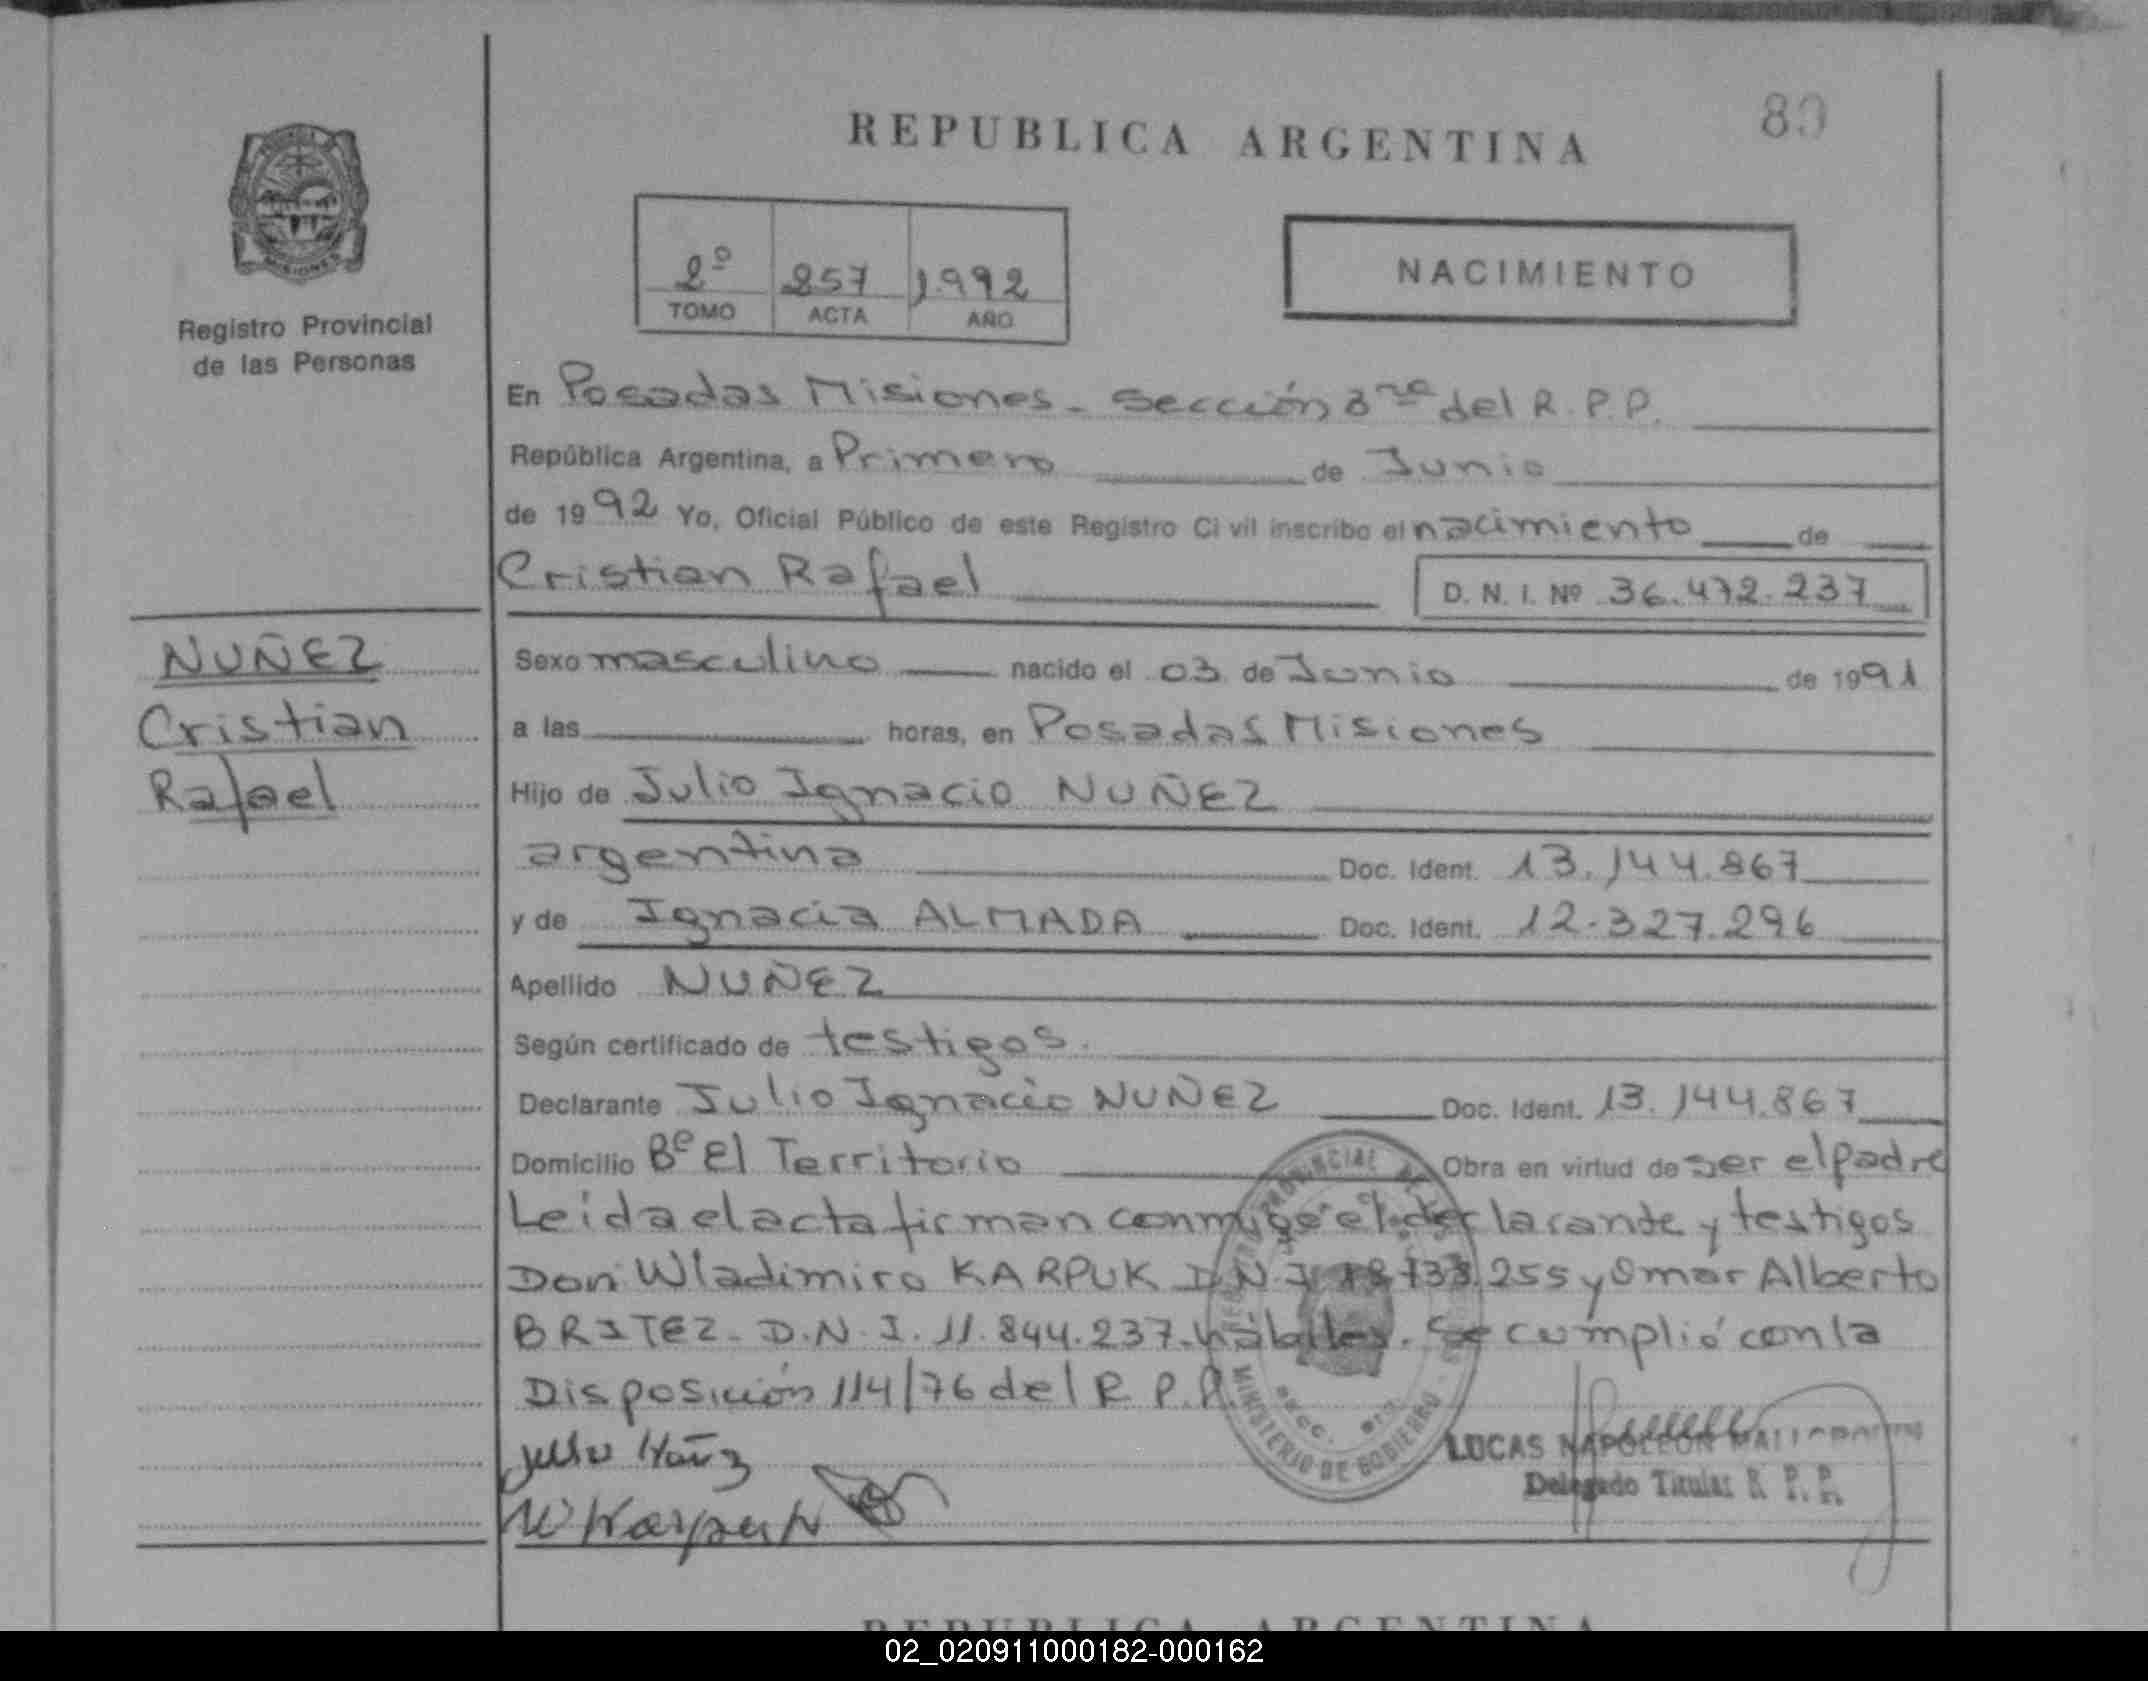 REPUBLICA ARGENTINA
2º 257 1.992
TOMO ACTA AÑO
NACIMIENTO
Registro Provincial
de las Personas
En Posadas Misiones - Sección 3ra del R.P.P.
República Argentina, a Primero de Junio
de 1992 Yo, Oficial Público de este Registro Civil inscribo el nacimiento de
Cristian Rafael D. N. I. Nº 36.472.237
NUÑEZ
Cristian
Rafael
Sexo masculino nacido el 03 de Junio de 1991
a las horas, en Posadas Misiones
Hijo de Julio Ignacio NUÑEZ
argentina Doc. Ident. 13.144.867
y de Ignacia ALMADA Doc. Ident. 12.327.296
Apellido NUÑEZ
Según certificado de testigos.
Declarante Julio Ignacio NUÑEZ Doc. Ident. 13.144.867
Domicilio Bº El Territorio Obra en virtud de ser el padre
Leida el acta firman conmigo el declarante y testigos
Don Wladimiro KARPUK D.N.I. 255 y Omar Alberto
BRITEZ - D.N.I. 11.844.237 - hábiles. Se cumplió con la
Disposición 114/76 del R.P.P.
MINISTERIO DE GOBIERNO
LUCAS NAPOLEON
Delegado Titular R. P. P.
REPUBLICA ARGENTINA
02_020911000182-000162